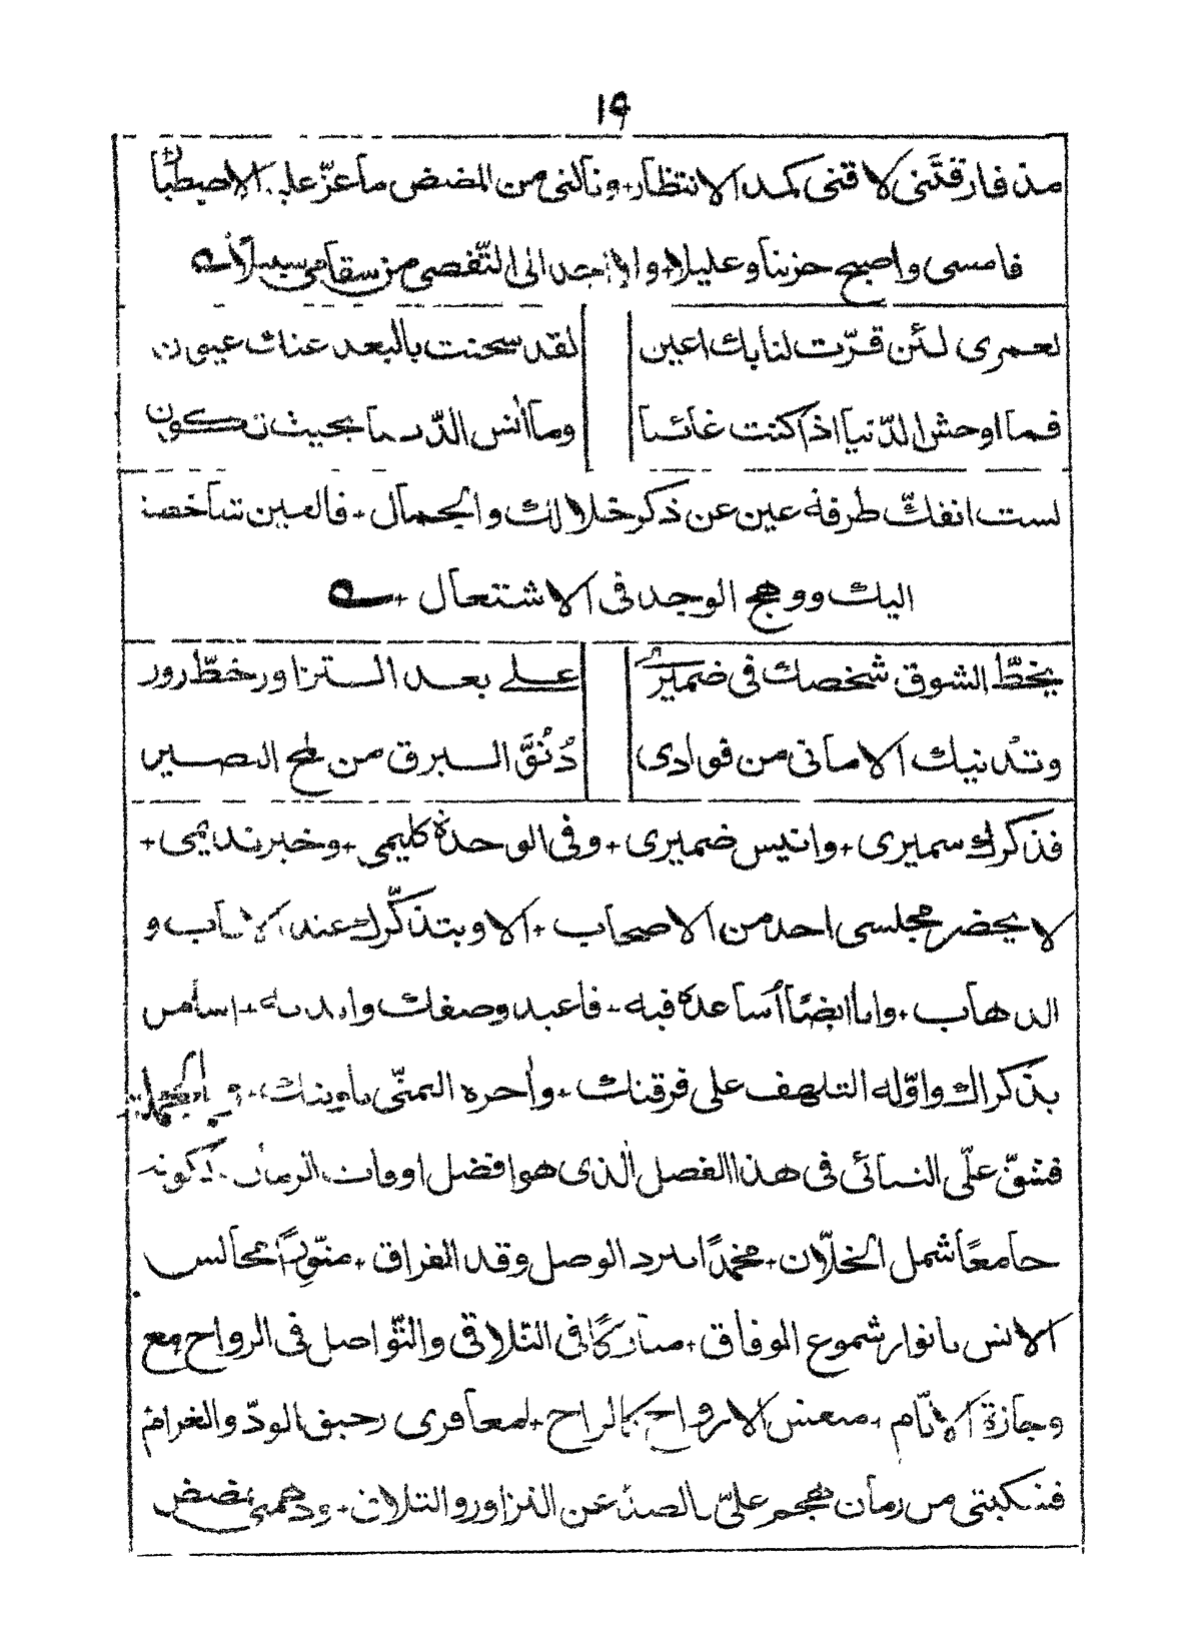 ١٩
مذ فارقتَني لاقنى كمد الانتظار+ونالنى من المضض ما عزّ عليه الاصطبا
فامسى واصبح حزينا وعليلا+ولا اجد الى التّفصى من سقامى سبيلاً
لعمرى لئن قرّت لنا بك اعين لقد سخنت بالبعد عنك عيون
فما اوحش الدّنيا اذا كنت غائبا وما اُنس الدّنيا بحيث تكون
لست انفكّ طرفة عين عن ذكر خلالك والجمال+فالعين شاخصة
اليك ووهج الوجد فى الاشتعال+
يخطّ الشوق شخصك فى ضميرى على بعد التزاور خطّ زور
وتدنيك الامانى من فوادى دُنُوَّ البرق من لمح البصير
فذكرك سميرى+وانيس ضميرى+وفى الوحدة كليمى+وخير نديمى+
لا يحضر مجلسى احد من الاصحاب+الا ويتذكّرك عند الاياب و
الذهاب+واما ايضًا اُساعده فيه+فاعيد وصفك وابديه+
بذكراك واوّله التلهف على فرقتك+واٰخره التمنّى
فشقّ علىّ فى هذا الفصل الذى هو افضل اوقات الزمان لكونه
جامعًا شمل الخلّان+مخمدًا ببرد الوصل وقد الفراق+منوّرًا مجالس
الانس بانوار شموع الوفاق+مباركًا فى التلاقى والتّواصل فى الرواح مع
الارواح كالراح+لمعاقرى رحيق الود والغرام
فنكبتى من زمان هجم علىّ بالصدّ عن التزاور والتلاق+